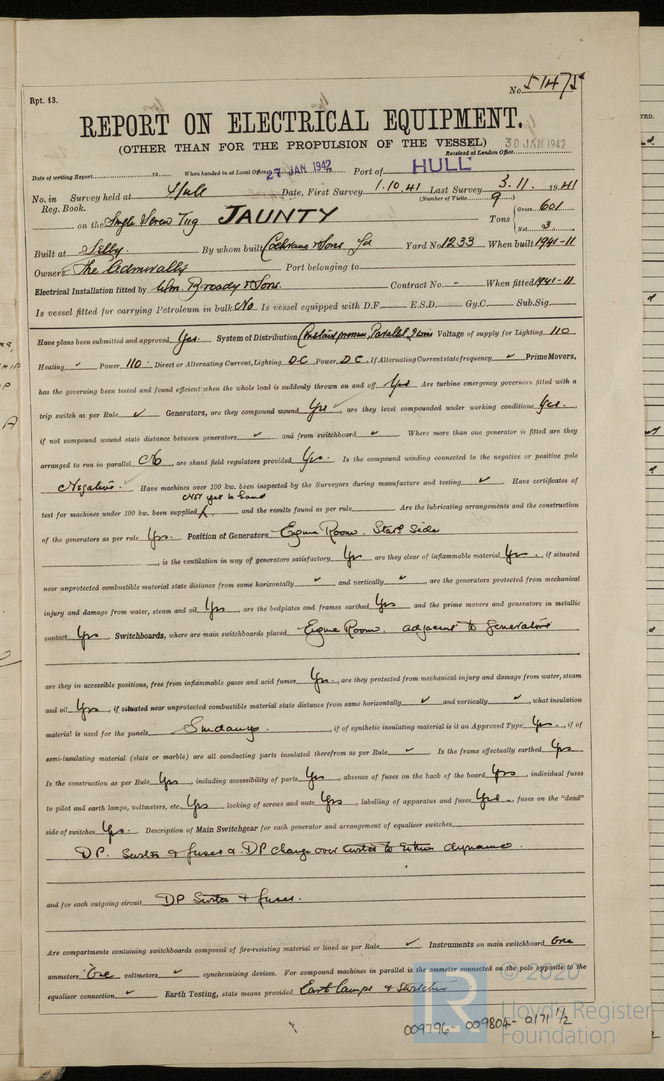 No. 51475
Rpt. 13.
REPORT ON ELECTRICAL EQUIPMENT.
(OTHER THAN FOR THE PROPULSION OF THE VESSEL) 30 JAN 1942
Received at London Office
Date of writing Report 19 When handed in at Local Office 27 JAN 1942 Port of HULL
No. in Survey held at Hull Date, First Survey 1.10.41 Last Survey 3.11. 1941
Reg. Book. (Number of Visits 9)
on the Single Screw Tug JAUNTY Tons { Gross 601 Net 3
Built at Selby. By whom built Cochrane & Sons Ld Yard No 1233 When built 1941-11
Owners The Admiralty Port belonging to
Electrical Installation fitted by Wm. Broady & Sons. Contract No. - When fitted 1941-11
Is vessel fitted for carrying Petroleum in bulk No Is vessel equipped with D.F. E.S.D. Gy.C. Sub.Sig.
Have plans been submitted and approved Yes. System of Distribution Constant pressure, Parallel 2 wire Voltage of supply for Lighting 110
Heating ✓ Power 110 Direct or Alternating Current, Lighting D.C Power D.C. If Alternating Current state frequency ✓ Prime Movers,
has the governing been tested and found efficient when the whole load is suddenly thrown on and off Yes Are turbine emergency governors fitted with a
trip switch as per Rule ✓ Generators, are they compound wound Yes ✓ are they level compounded under working conditions Yes.
if not compound wound state distance between generators ✓ and from switchboard ✓ Where more than one generator is fitted are they
arranged to run in parallel No are shunt field regulators provided Yes. Is the compound winding connected to the negative or positive pole
Negative. ✓ Have machines over 100 kw. been inspected by the Surveyors during manufacture and testing ✓ Have certificates of
Not yet to hand
test for machines under 100 kw. been supplied and the results found as per rule Are the lubricating arrangements and the construction
of the generators as per rule Yes. Position of Generators Engine Room, Starb Side
, is the ventilation in way of generators satisfactory Yes are they clear of inflammable material Yes , if situated
near unprotected combustible material state distance from same horizontally ✓ and vertically ✓ , are the generators protected from mechanical
injury and damage from water, steam and oil Yes , are the bedplates and frames earthed Yes and the prime movers and generators in metallic
contact Yes Switchboards, where are main switchboards placed Engine Room. adjacent to Generators
are they in accessible positions, free from inflammable gases and acid fumes Yes. , are they protected from mechanical injury and damage from water, steam
and oil Yes , if situated near unprotected combustible material state distance from same horizontally ✓ and vertically ✓ , what insulation
material is used for the panels Sindanyo. , if of synthetic insulating material is it an Approved Type Yes. , if of
semi-insulating material (slate or marble) are all conducting parts insulated therefrom as per Rule ✓ Is the frame effectually earthed Yes
Is the construction as per Rule Yes , including accessibility of parts Yes , absence of fuses on the back of the board Yes , individual fuses
to pilot and earth lamps, voltmeters, etc. Yes , locking of screws and nuts Yes , labelling of apparatus and fuses Yes , fuses on the "dead"
side of switches Yes. Description of Main Switchgear for each generator and arrangement of equaliser switches
DP. Switch & fuses & DP change over switch to either dynamo.
and for each outgoing circuit DP Switch & fuses.
Are compartments containing switchboards composed of fire-resisting material or lined as per Rule ✓ Instruments on main switchboard One
ammeters One voltmeters ✓ synchronising devices. For compound machines in parallel is the ammeter connected on the pole opposite to the
equaliser connection ✓ Earth Testing, state means provided Earth lamps & Switches
© 2020
Lloyd's Register
Foundation
009796-009804-0171 1/2